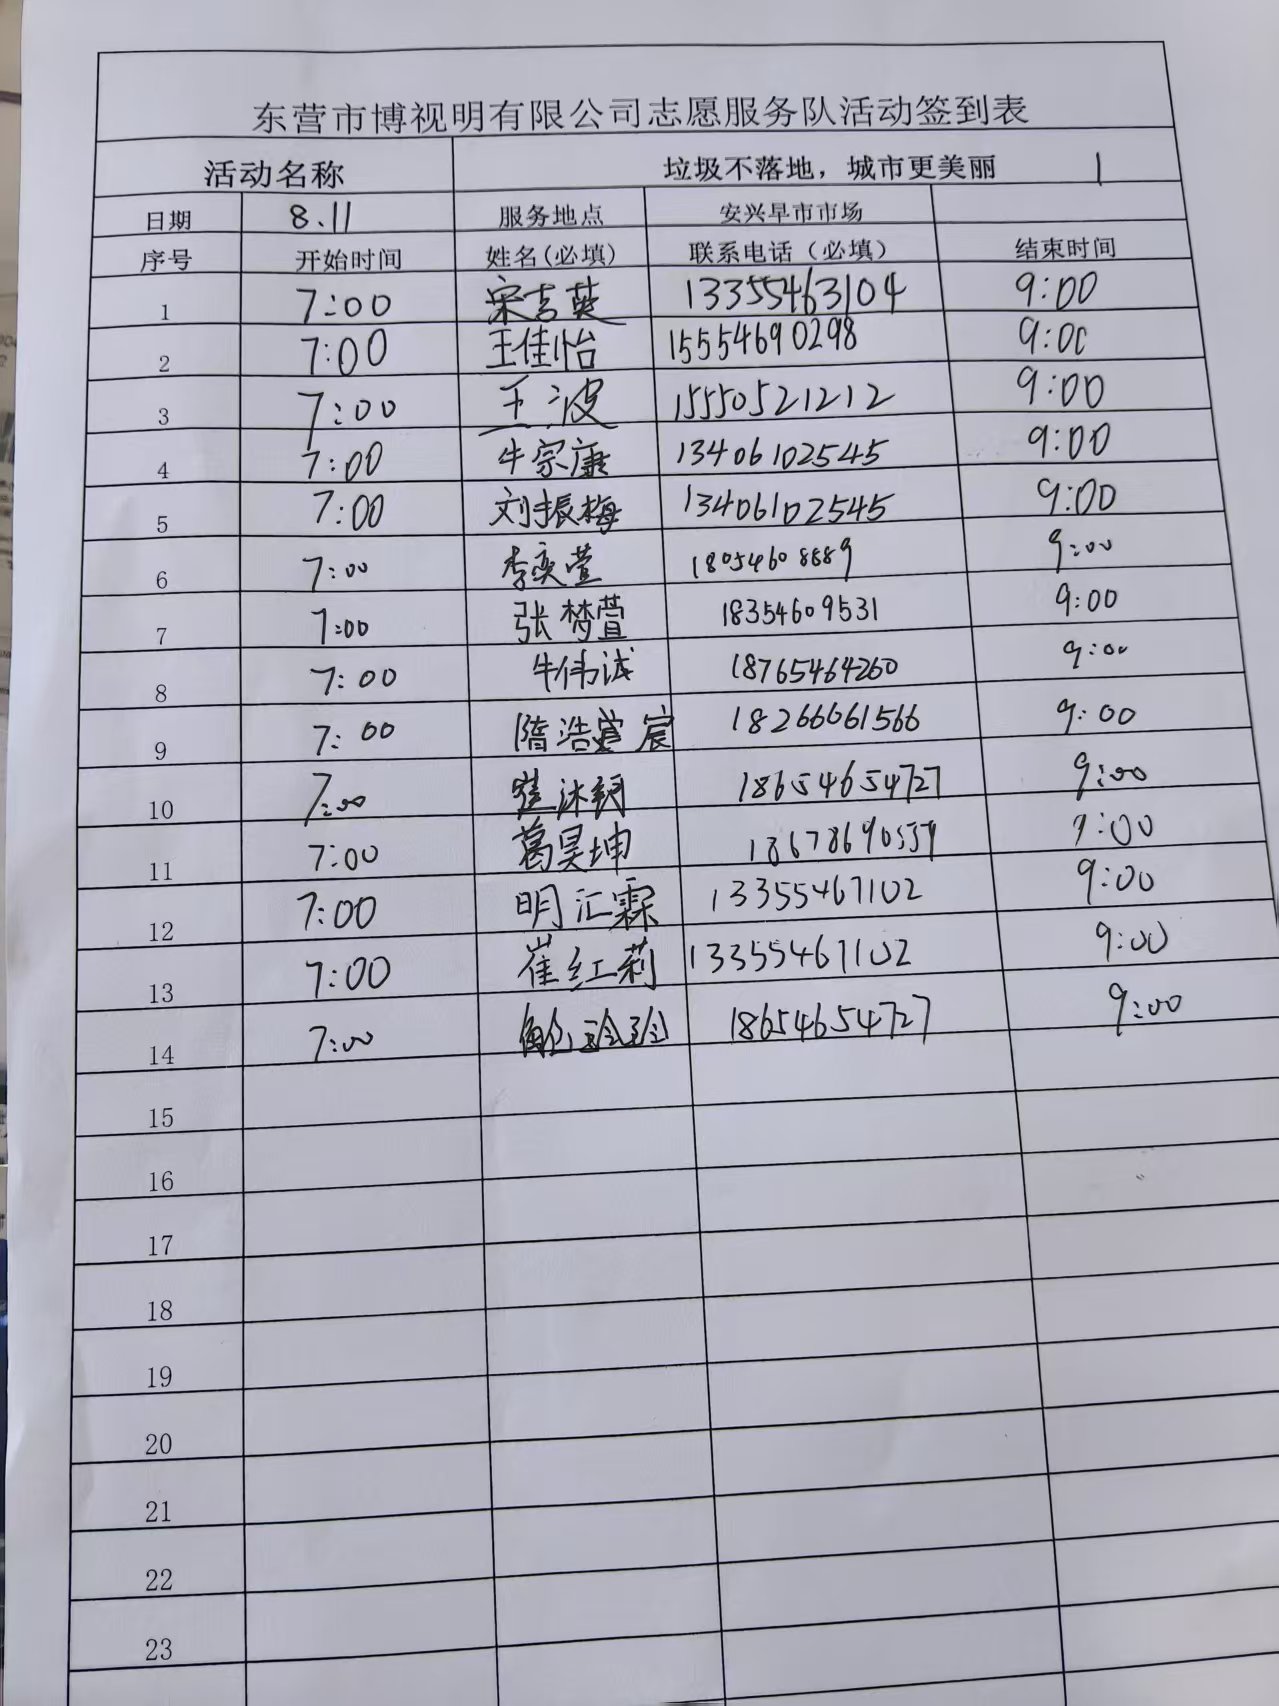 东营市博视明有限公司志愿服务队活动签到表
活动名称 垃圾不落地，城市更美丽 1
日期 8.11 服务地点 安兴早市市场
序号 开始时间 姓名(必填) 联系电话（必填） 结束时间
1 7:00 宋吉英 13355463104 9:00
2 7:00 王佳怡 15554690298 9:00
3 7:00 王波 15550521212 9:00
4 7:00 牛宗康 13406102545 9:00
5 7:00 刘振梅 13406102545 9:00
6 7:00 李奕萱 18054608889 9:00
7 7:00 张梦萱 18354609531 9:00
8 7:00 牛伟诚 18765464260 9:00
9 7:00 隋浩宸 18266061566 9:00
10 7:00 崔沐钥 18654654727 9:00
11 7:00 葛昊坤 18678690559 9:00
12 7:00 明汇霖 13355467102 9:00
13 7:00 崔红莉 13355467102 9:00
14 7:00 18654654727 9:00
15
16
17
18
19
20
21
22
23